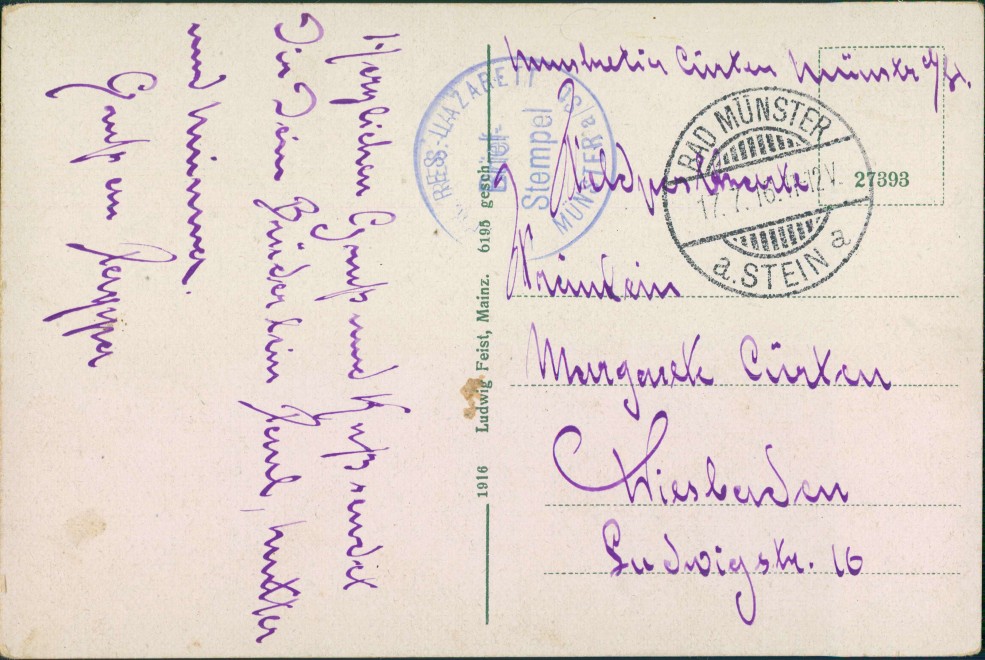 Herzlichen Gruß und Kuß sendet
Dir Dein Brüderlein Paul, Mutter
und Minna.
Gruß an
1916 Ludwig Feist, Mainz. 6195 gesch.
RES.-LAZARETT
Brief-
Stempel
MÜNSTER a/ST
Musketier Cürten Münster a/St.
Feldpostkarte
BAD MÜNSTER
17.7.16. 11-12V.
a. STEIN a
27393
Fräulein
Margarete Cürten
Wiesbaden
Ludwigstr. 16